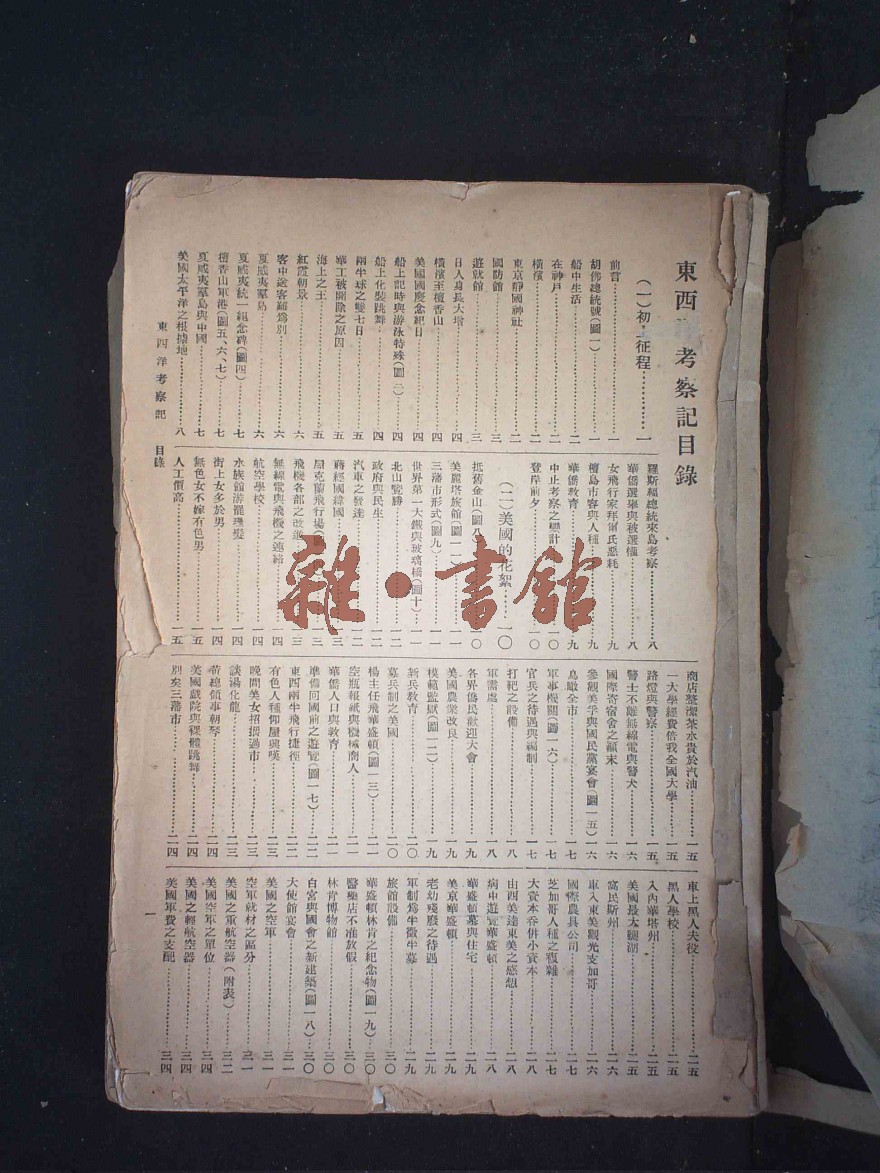 東西 考察記目錄
(一)初 征程…………一
前言…………一
胡佛總統號(圖一)…………一
船中生活…………二
在神戶…………二
橫濱…………二
東京靖國神社…………二
國防館…………三
遊就館…………三
日人身長大增…………四
橫濱至檀香山…………四
美國國慶念紀日…………四
船上記時與游泳特殊(圖二)…………四
船上化裝跳舞…………四
兩半球之雙七日…………五
華工被開除之原因…………五
海上之王…………五
紅霞朝景…………六
客中送客痛為別…………六
夏威夷羣島…………六
夏威夷統一紀念碑(圖四)…………七
檀香山軍港(圖五、六、七)…………七
夏威夷羣島與中國…………七
美國太平洋之根據地…………八
羅斯福總統來島考察…………八
華僑選舉與被選權…………八
女飛行家拜爾氏惡耗…………九
檀島市容與人種…………九
華僑教育…………九
中止考察之變計…………一〇
登岸前夕…………一〇
(二)美國的花絮…………一〇
抵舊金山(圖八)…………一〇
美麗塔旅館…………一一
三藩市形式(圖九)…………一一
世界第一大鐵與玻璃橋(圖十)…………一一
北山覽勝…………一二
政府與民生…………一二
汽車之發達…………一二
蔣經國緯國…………一三
屋克蘭飛行場…………一三
飛機各部之改進…………一三
無線電與飛機之連絡…………一四
航空學校…………一四
水族館游罷理髮…………一四
街上女多於男…………一四
無色女不嫁有色男…………一五
人工價高…………一五
商店整潔茶水貴於汽油…………一五
一大學經費倍我全國大學…………一五
路燈與警察…………一五
警士不離無線電與警犬…………一六
國際寄宿舍之顛末…………一六
參觀美孚與國民黨宴會(圖一五)…………一六
鳥瞰全市…………一七
軍事機關(圖一六)…………一七
官兵之待遇與編制…………一七
打靶之設備…………一八
軍需處…………一八
各界僑民歡迎大會…………一九
美國農業改良…………一九
模範監獄(圖一二)…………一九
新兵教育…………二〇
募兵制之美國…………二〇
楊主任飛華盛頓(圖一三)…………二一
空瓶報紙與機械商人…………二一
華僑人口與教育…………二一
準備回國前之遊覽(圖一七)…………二二
東西兩半飛行捷徑…………二二
有色人種仰屋興嘆…………二三
晚間美女招搖過市…………二三
談渴化龍…………二三
黃總領事朝琴…………二四
美國戲院與裸體跳舞…………二四
別矣三藩市…………二四
車上黑人夫役…………二五
黑人學校…………二五
入內華塔州…………二五
美國最大鹽湖…………二五
窩民斯州…………二六
車入東美觀光支加哥…………二六
國際農具公司…………二七
芝加哥人種之複雜…………二七
大資本吞併小資本…………二八
由西美達東美之感想…………二八
病中遊覽華盛頓…………二八
美京華盛頓…………二九
華盛頓墓與住宅…………二九
老幼殘廢之待遇…………二九
軍制為半徵半募…………二九
旅館設備…………三〇
華盛頓林肯之紀念物(圖一九)…………三〇
醫藥店不准放假…………三〇
林肯博物館…………三〇
白宮與國會之新建築(圖一八)…………三〇
大使館宴會…………三一
美國之空軍…………三一
空軍就材之區分…………三一
美國之重航空器(附表)…………三二
美國空軍之單位…………三四
美國之輕航空器…………三四
美國軍費之支配…………三四
東西洋考察記 目錄
一
雜·書館